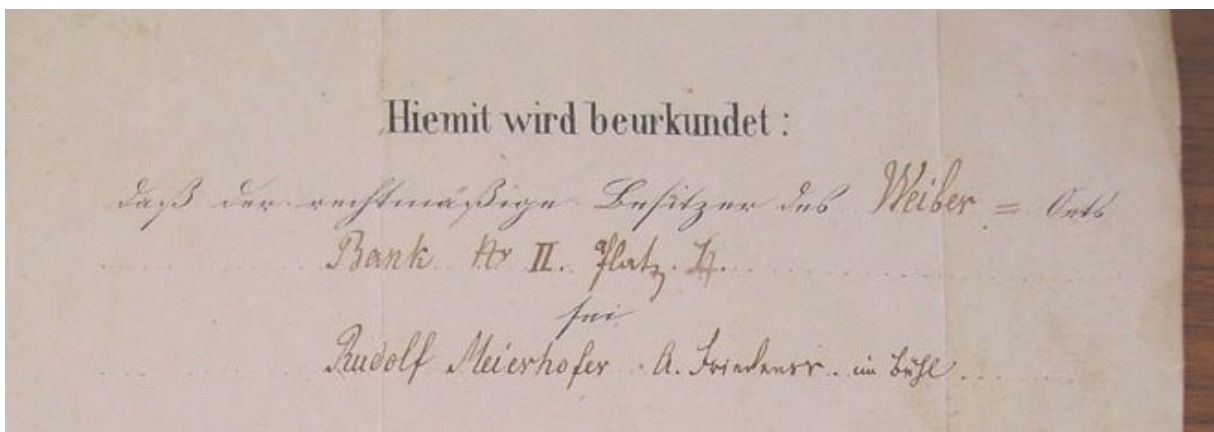 Hiemit wird beurkundet :
daß der rechtmäßige Besitzer des Weiber = Orts
Bank No II. Platz. 4.
sei
Rudolf Meierhofer. A. Friedensr. im Bühl